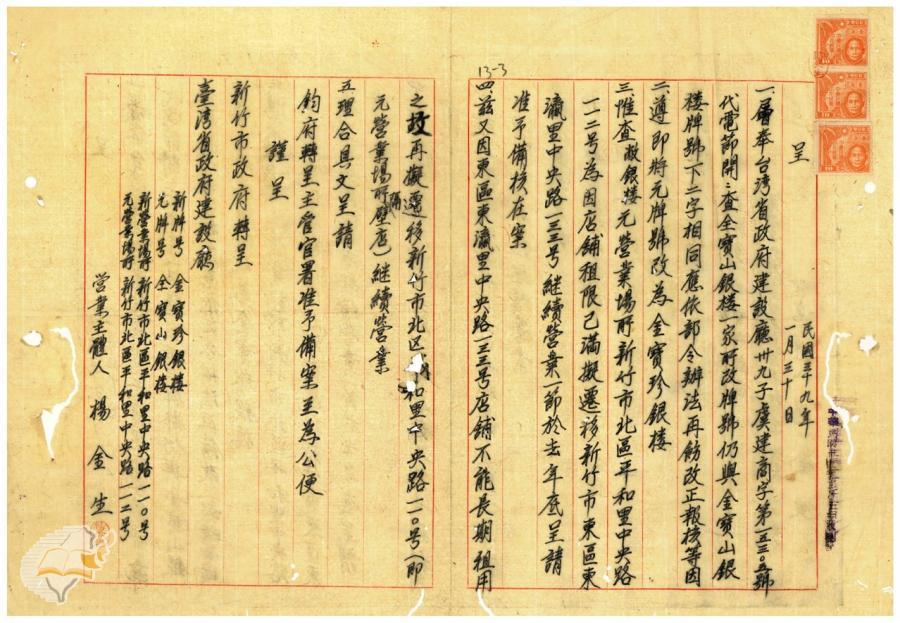 13-3
呈
民國三十九年
一月三十日
一、層奉台湾省政府建設廳卅九子虞建商字第一五三〇五號
代電節開：查全寶山銀楼一家所改牌號仍與金寶山銀
楼牌號下二字相同應依部令辦法再飭改正報核等因
二、遵即將元牌號改為金寶珍銀楼
三、惟查敝銀楼元營業場所新竹市北區平和里中央路
一一二号為因店舖租限已滿擬遷移新竹市東區東
瀛里中央路一三三号繼續營業一節於去年底呈請
准予備核在案
四、茲又因東區東瀛里中央路一三三号店舖不能長期租用
之故再擬遷移新竹市北区平和里中央路一一〇号（即
元營業場所隔壁店）継續營業
五、理合具文呈請
鈞府轉呈主管官署准予備案至為公便
謹呈
新竹市政府轉呈
臺灣省政府建設廳
新牌号 金寶珍銀楼
元牌号 全寶山銀楼
新營業場所 新竹市北區平和里中央路一一〇号
元營業場所 新竹市北區平和里中央路一一二号
營業主體人 楊金生